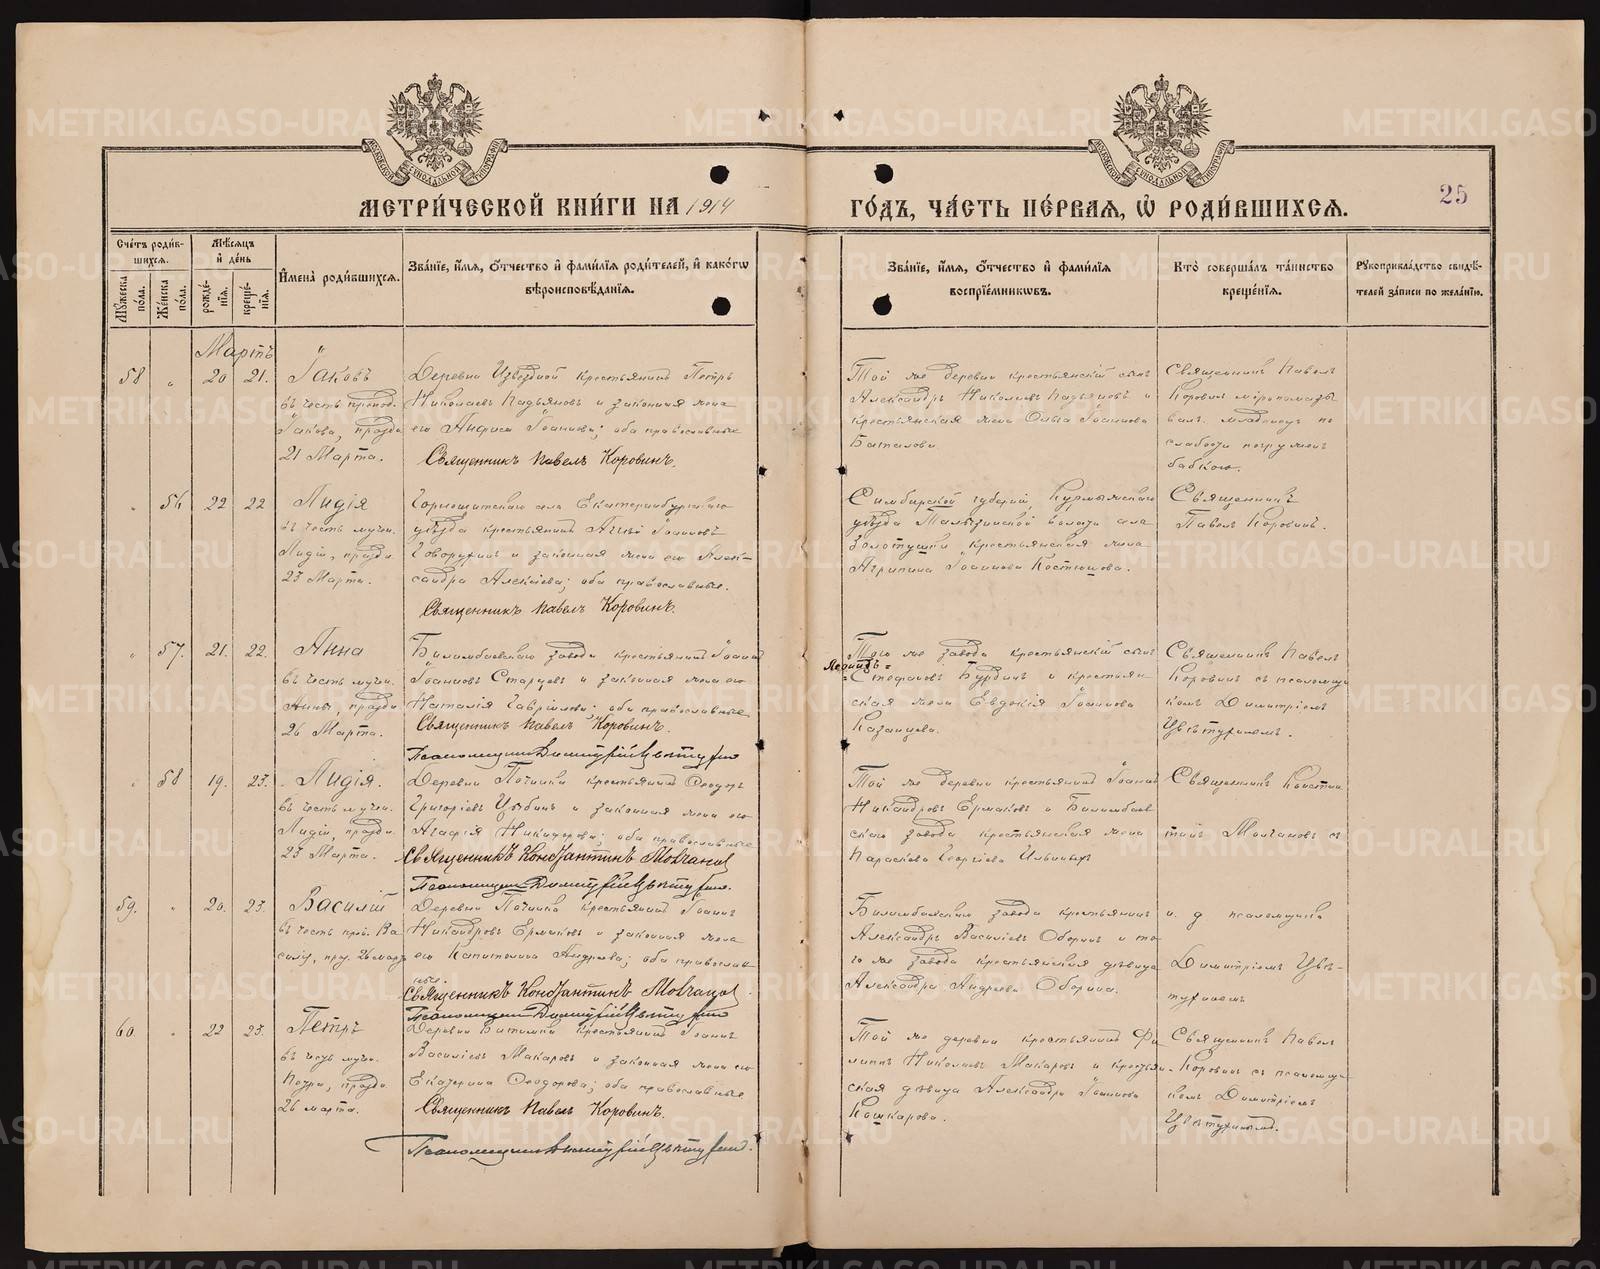 МЕТРИ́ЧЕСКОЙ КНИ́ГИ НА 1914
ГО́ДЪ, ЧА́СТЬ ПЕ́РВАѦ, Ѡ҆ РОДИ́ВШИХСѦ.
25
Сче́тъ роди́в-
шихсѧ.
Мѣ́сѧцъ
и҆ де́нь
Мꙋ́жеска
по́ла.
Же́нска
по́ла.
рожде́-
нїѧ.
креще́-
нїѧ.
И҆мена̀ роди́вшихсѧ.
Зва́нїе, и҆́мѧ, ѻ҆́тчество и҆ фами́лїѧ роди́телей, и҆ како́гѡ
вѣроисповѣ́данїѧ.
Зва́нїе, и҆́мѧ, ѻ҆́тчество и҆ фами́лїѧ
воспрїе́мникѡвъ.
Кто̀ соверша́лъ та́инство
креще́нїѧ.
Рꙋкоприкла́дство свидѣ́-
телей за́писи по жела́нїю.
Мартъ
58 „ 20 21. Іаковъ
въ честь препод.
Іакова, праздн.
21 Марта.
Деревни Извездной крестьянинъ Петръ
Николаевъ Падьяновъ и законная жена
его Анфиса Іоаннова; оба православные
Священникъ Павелъ Коровинъ.
Той же деревни крестьянскій сынъ
Александръ Николаевъ Падьяновъ и
крестьянская жена Ольга Іоаннова
Баталова
Священникъ Павелъ
Коровинъ миропомазы
валъ младенецъ по
слабости погруженъ
бабкою.
„ 56 22 22 Лидія
въ честь мучен.
Лидіи, праздн.
23 Марта.
Горнощитскаго села Екатеринбургскаго
уѣзда крестьянинъ Іоанновъ
Говорухинъ и законная жена его Алек-
сандра Алексіева; оба православные.
Священникъ Павелъ Коровинъ.
Симбирской губерніи, Курмышскаго
уѣзда Талызинской волости села
крестьянская жена
Агрипина Іоаннова Костюшова.
Священникъ
Павелъ Коровинъ.
„ 57. 21. 22. Анна
въ честь мучен.
Анны, праздн.
26 Марта.
Билимбаевскаго завода крестьянинъ Іоаннъ
Іоанновъ Старцевъ и законная жена его
Наталія Гавріилова; оба православные
Священникъ Павелъ Коровинъ.
Псаломщикъ Димитрій Цвѣтухинъ
Того же завода крестьянскій сынъ
Леонидъ=
=Стефановъ Бурдинъ и крестьян-
ская жена Евдокія Іоаннова
Казанцева.
Священникъ Павелъ
Коровинъ съ псаломщи
комъ Димитріемъ
Цвѣтухинымъ.
„ 58 19. 23. Лидія.
въ честь мучен.
Лидіи, праздн.
23 Марта.
Деревни Починки крестьянинъ Ѳеодоръ
Григоріевъ Цыбинъ и законная жена его
Агафія Никифорова; оба православные
Священникъ Константинъ Молчановъ
Псаломщикъ Димитрій Цвѣтухинъ.
Той же деревни крестьянинъ Іоаннъ
Никандровъ Ермаковъ и Билимбаев
скаго завода крестьянская жена
Параскева Георгіева Ильиныхъ
Священникъ Констан
тинъ Молчановъ съ
59. „ 20. 23. Василій
въ честь преп. Ва
силія, праз. 26 марта
Деревни Починка крестьянинъ Іоаннъ
Никандровъ Ермаковъ и законная жена
его Капитолина Андреева; оба православ
ные.
Священникъ Константинъ Молчановъ
Псаломщикъ Димитрій Цвѣтухинъ
Билимбаевскаго завода крестьянинъ
Александръ Василіевъ Оборинъ и то
го же завода крестьянская дѣвица
Александра Андреева Оборина.
и. д псаломщика
Димитріемъ Цвѣ-
тухинымъ
60. „ 22 23. Петръ
въ честь мучен.
Петра, праздн.
26 марта.
Деревни Битимки крестьянинъ Іоаннъ
Василіевъ Макаровъ и законная жена его
Екатерина Ѳеодорова; оба православные
Священникъ Павелъ Коровинъ.
Псаломщикъ Димитрій Цвѣтухинъ.
Той же деревни крестьянинъ Фи
липпъ Николаевъ Макаровъ и крестьян-
ская дѣвица Александра Іоаннова
Кошкарова.
Священникъ Павелъ
Коровинъ съ псаломщи
комъ Димитріемъ
Цвѣтухинымъ.